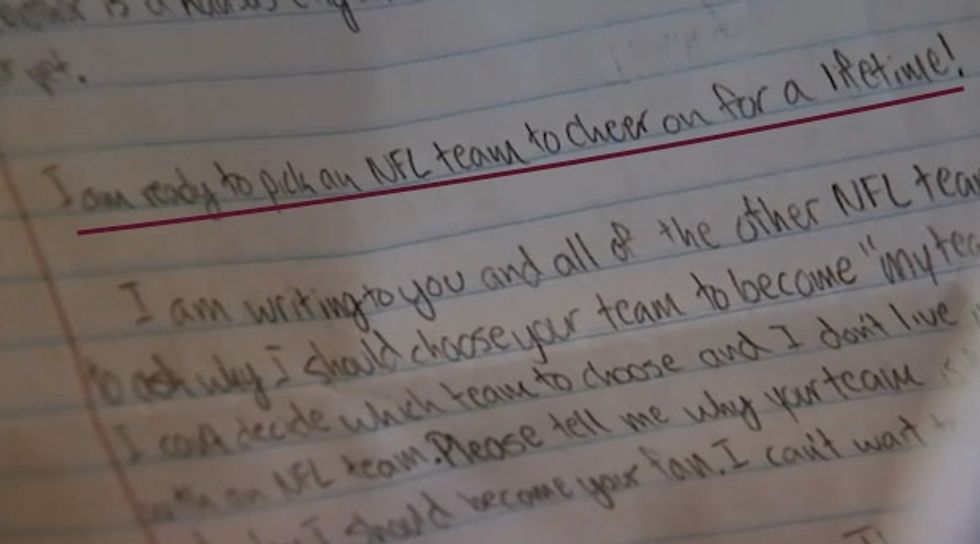 is a
yet.
I am ready to pick an NFL team to cheer on for a lifetime!
I am writing to you and all of the other NFL
to ask why I should choose your team to become "my
I can't decide which team to choose and I don't live
an NFL team. Please tell me why your team
I should become your fan. I can't wait